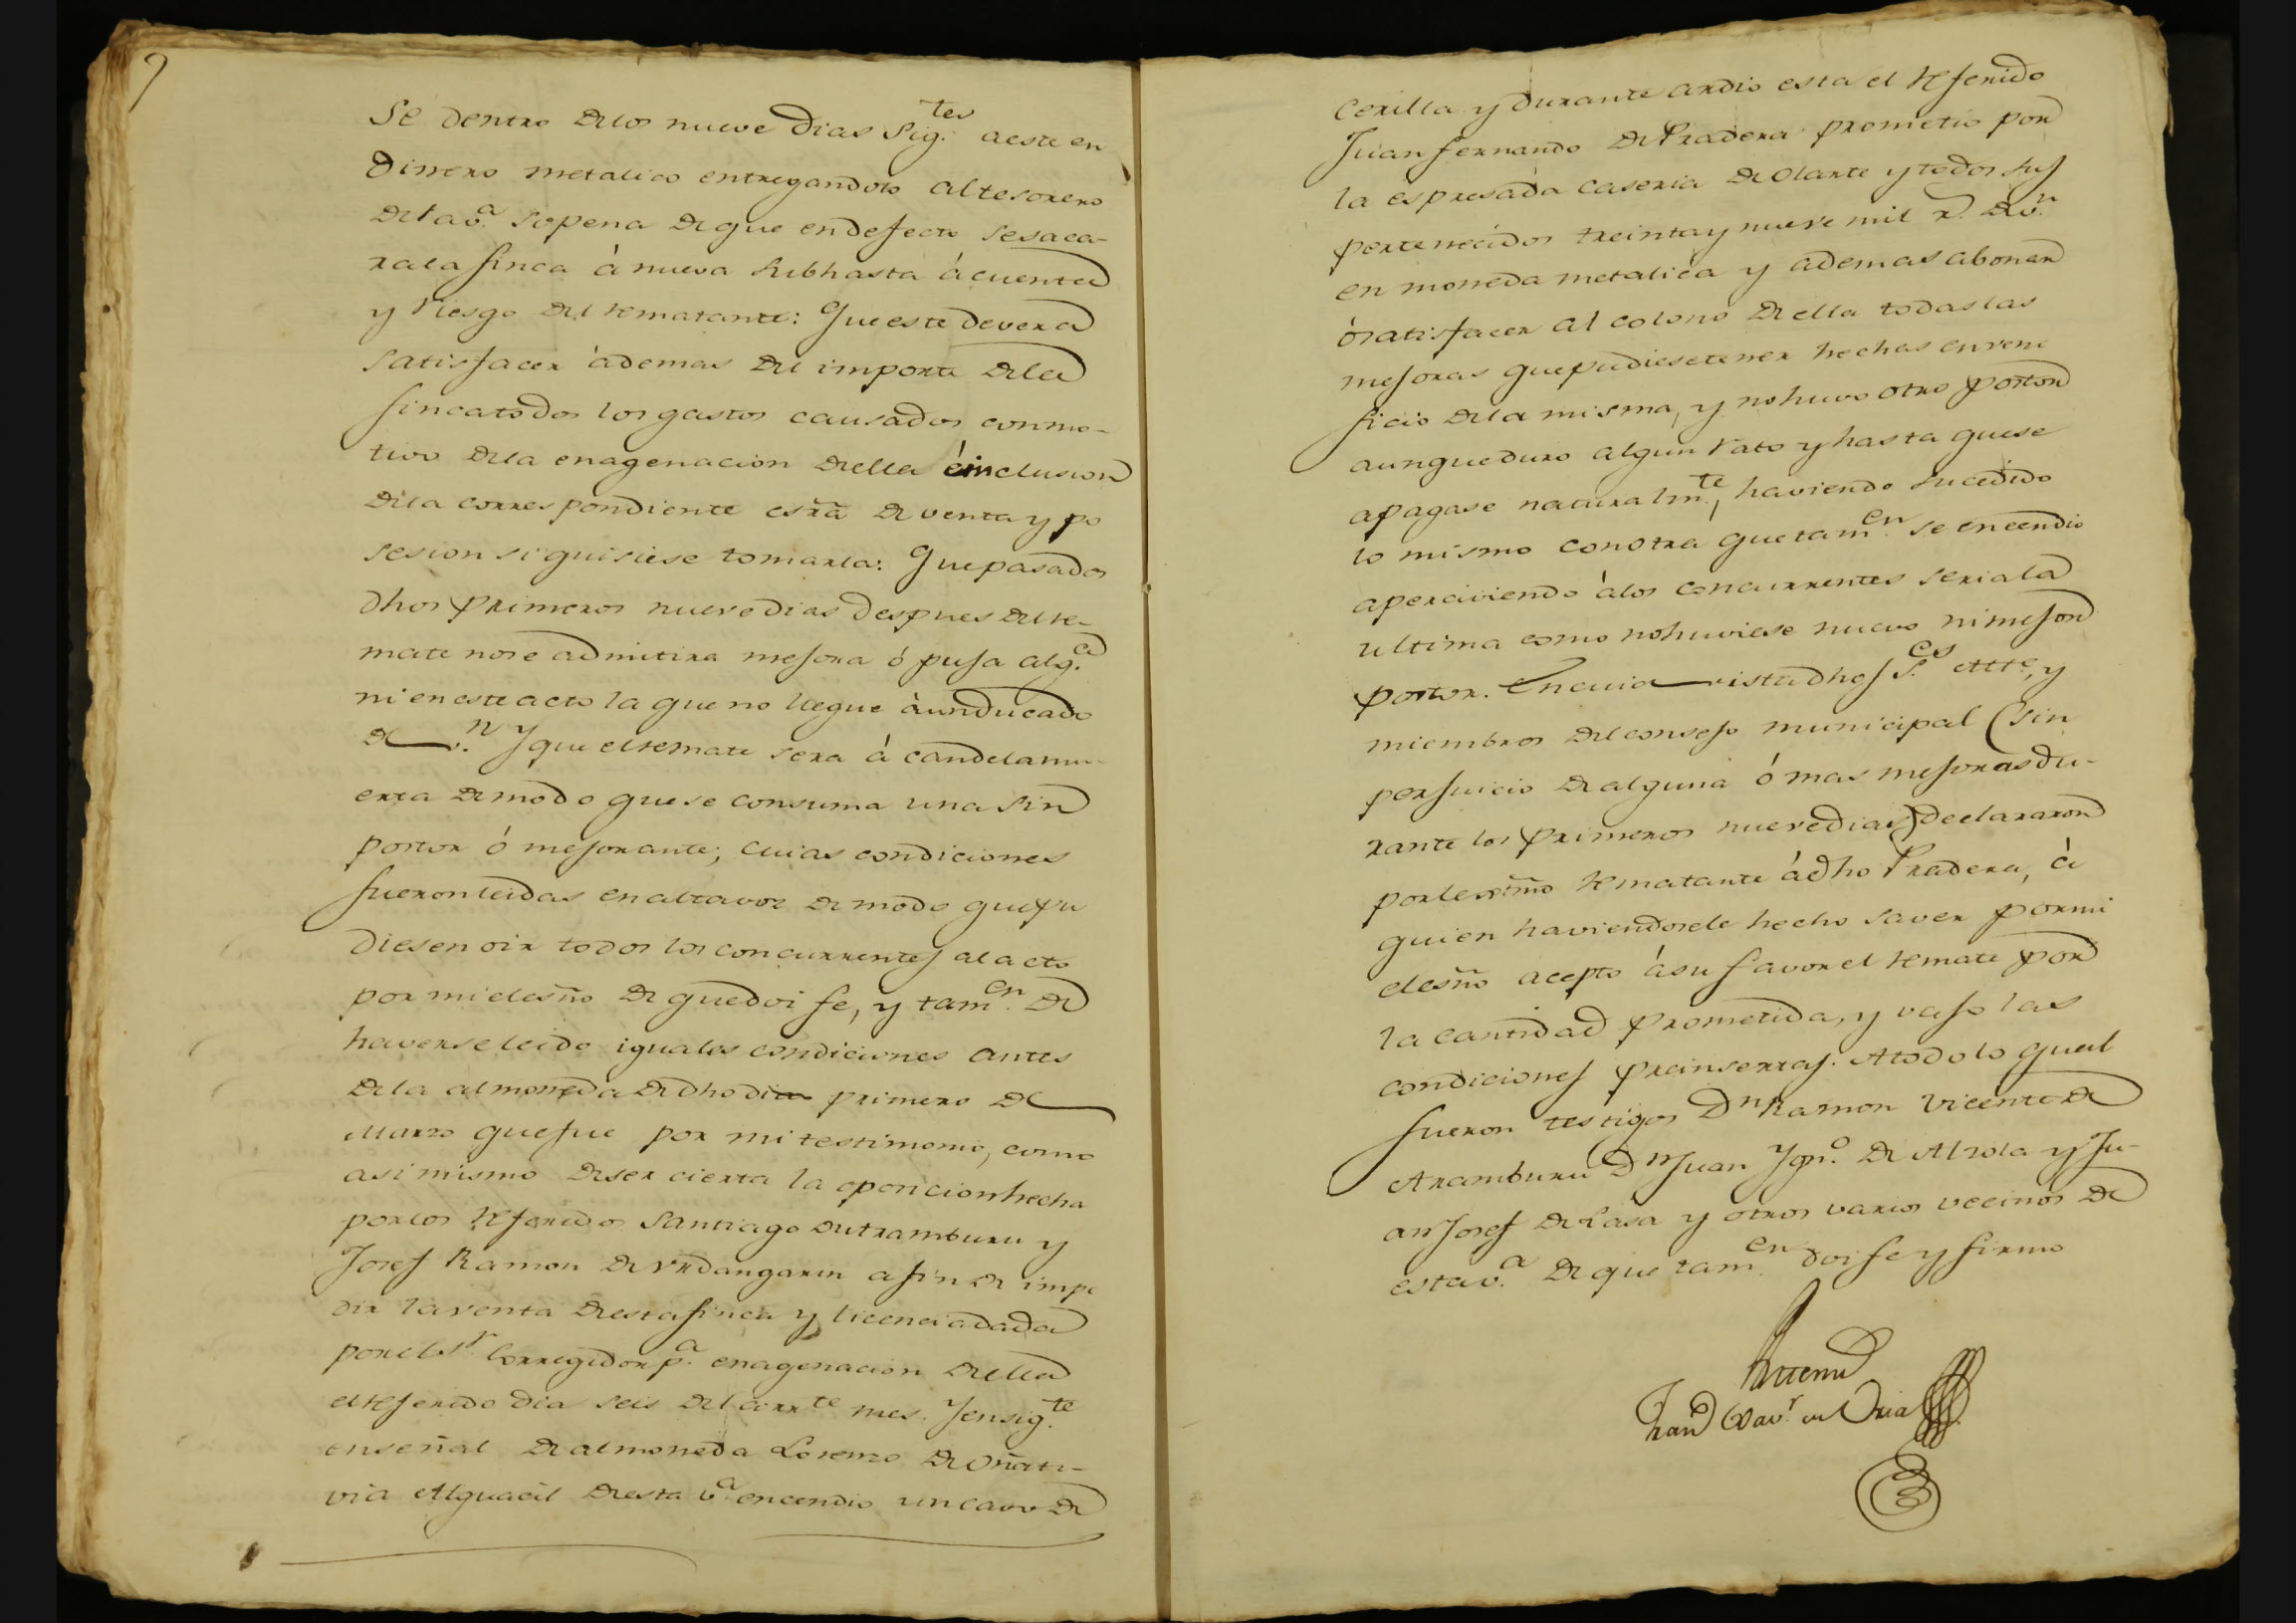 9
se dentro de los nueve dias sig.tes a este en
dinero metalico entregandolo al tesorero
de la v.a so pena de que en defecto se saca-
ra la finca á nueva subhasta á cuenta
y riesgo del rematante: Que este devera
satisfacer ademas del importe de la
finca todos los gastos causados con mo-
tivo de la enagenacion de ella é inclusion
de la correspondiente esrã de venta y po
sesion si quisiese tomarla: Que pasados
dhos primeros nueve dias despues del re-
mate no se admitira mejora ó puja alg.a
ni en este acto la que no llegue á un ducado
de v.n Y que el remate sera á candela mu-
erta de modo que se consuma una sin
postor ó mejorante; cuias condiciones
fueron leidas en alta voz de modo que pu
diesen oir todos los concurrentes al acto
por mi el esño de que doi fe, y tam.en de
haverse leido iguales condiciones antes
de la almoneda de dho dia primero de
Marzo que fue por mi testimonio, como
asi mismo de ser cierta la oposicion hecha
por los referidos Santiago de Aramburu y
Josef Ramon de Urdangarin a fin de impe
dir la venta de esta finca y licencia dada
por el S.r Corregidor p.a enagenacion de ella
el referido dia seis del corr.te mes. Y en sig.te
en señal de almoneda Lorenzo de Oñati-
via Alguacil de esta v.a encendio un cavo de
cerilla y durante ardio esta el referido
Juan Fernando de Pradera prometio por
la espresada caseria de Olarte y todos sus
pertenecidos treinta y nueve mil r.s de v.n
en moneda metalica y ademas abonar
ó satisfacer al colono de ella todas las
mejoras que pudiese tener hechas en vene
ficio de la misma, y no huvo otro postor
aunque duro algun rato y hasta que se
apagase naturalm.te, haviendo sucedido
lo mismo con otra que tam.en se encendio
aperciviendo á los concurrentes seria la
ultima como no huviese nuevo ni mejor
postor. En cuia vista dhos S.es Alt.e, y
miembros del consejo municipal (sin
perjuicio de alguna ó mas mejoras du-
rante los primeros nueve dias) declararon
por lexitmo rematante á dho Pradera, á
quien haviendosele hecho saver por mi
el esño acepto á su favor el remate por
la cantidad prometida, y vajo las
condiciones preinsertas. A todo lo qual
fueron testigos Dn Ramon Vicente de
Aramburu Dn Juan Ygn.o de Alzola y Ju-
an Josef de Lasa y otros varios vecinos de
esta v.a de que tam.en doi fe y firmo
Antemi